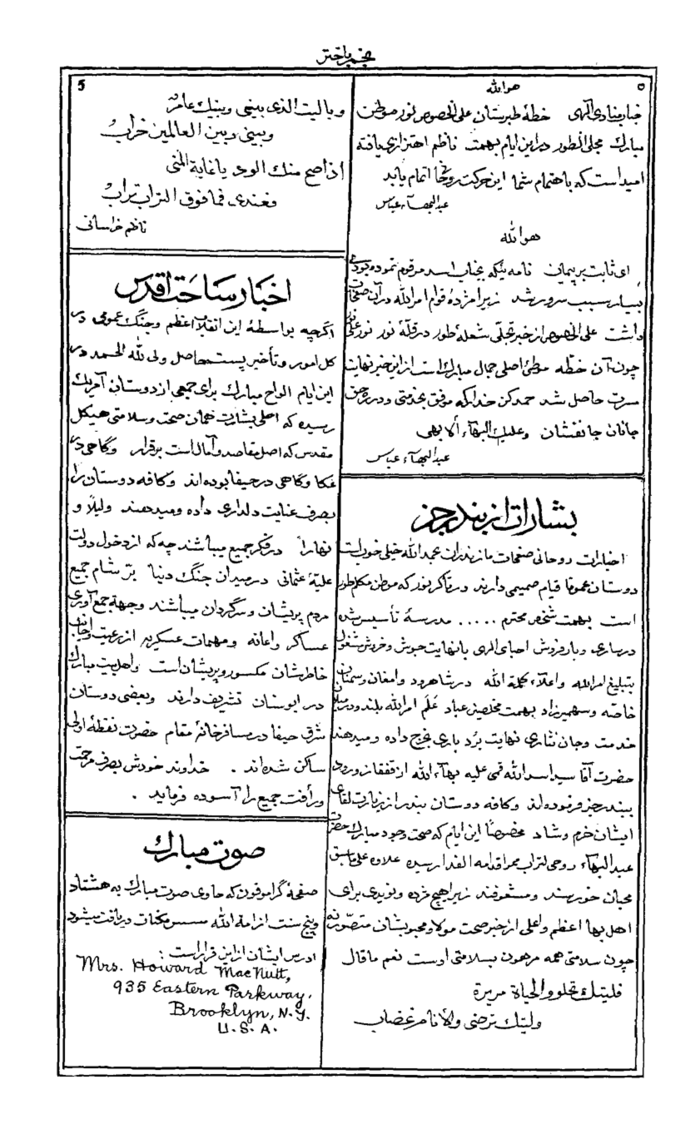 نجم باختر
٥
هوالله
خطهٔ طبرستان علی الخصوص نور موطن
مبارک مجلی الطور در این ایام بهمت ناظم اهتزازی یافته
امید است که باهتمام شما این حرکت روحها اتمام یابد
عبدالبهآء عباس
هوالله
ای ثابت بر پیمان نامه ئیکه بجناب اسد مرقوم نموده بودی
بسیار سبب سرور شد زیرا مژدهٔ قوام امرالله در آن صفحات
داشت علی الخصوص از خبر تجلی شعلهٔ طور در قلهٔ نور نور علی نور
چون آن خطه موطن اصلی جمال مبارک است از این خبر نهایت
مسرت حاصل شد حمد کن خدا را که موفق بخدمتی و در ره
جانان جانفشان و علیک البهآء الابهی
عبدالبهآء عباس
بشارات از بندر جز
اخبارات روحانی صفحات مازندران بحمدالله خیلی خوب است
دوستان عموما قیام صمیمی دارند و در تاکر نور که موطن مکلم طور
است بهمت شخص محترم ..... مدرسهٔ تأسیس شده
در ساری و بارفروش احبای الهی بانهایت جوش و خروش مشغول
بتبلیغ امرالله و اعلاء کلمة الله در شاهرود و دامغان و سمنان
خاصه و سنگسر بهمت مخلصین عباد عَلَم امرالله بلند و در سبیل
خدمت و جان نثاری نهایت بردباری بخرج داده و میدهند
حضرت آقا سید اسدالله قمی علیه بهآء الله از قفقاز ورود
ببندر جز فرموده اند و کافه دوستان بندر از زیارت لقای
ایشان خرم و شاد مخصوصًا این ایام که صحت وجود مبارک حضرت
عبدالبهآء روحی لتراب ممر اقدامه الفدا رسیده علاوه علی ماسبق
محبان خورسند و مشعوفند زیرا هیچ مژده و نویدی برای
اهل بها اعظم و اعلی از خبر صحت مولا و محبوبشان متصور نه
چون سلامتی همه مرهون بسلامتی اوست نعم ما قال
فلیتک تحلو والحیاة مریرة
ولیتک ترضی والأنام غضاب
5
ویالیت الذی بینی وبینک عامر
وبینی وبین العالمین خراب
اذا صح منک الود یا غایة المنی
فعندی فما فوق التراب تراب
ناظم خراسانی
اخبار ساحت اقدس
اگرچه بواسطهٔ این انقلاب اعظم و جنگ عمومی در
کل امور و تأخیر پست حاصل ولی لله الحمد در
این ایام الواح مبارک برای جمعی از دوستان آمریک
رسیده که اصلی بشارت همان صحت و سلامتی هیکل
مقدس که اصل مقاصد و آمال است برقرار وگاهی در
عکا وگاهی در حیفا بوده اند و کافه دوستان را
بصرف عنایت دلداری داده و میدهند ولیلًا و
نهارًا در فکر جمیع میباشند چه که از دخول دولت
علیهٔ عثمانی در میدان جنگ دنیا بر شام جمیع
مردم پریشان و سرگردان میباشند وجهة جمع آوری
عساکر واعانه ومهمات عسکریه از رعیت
خاطرشان مکسور و پریشان است واهلبیت مبارک
در ابوسنان تشریف دارند و بعضی دوستان
شرق حیفا در مسافرخانهٔ مقام حضرت نقطهٔ اولی
ساکن شده اند . خداوند خودش بصرف مرحمت
ورأفت جمیع را آسوده فرماید .
صوت مبارک
صفحهٔ گرامفون که حاوی صوت مبارک به هشتاد
وپنج سنت از امة الله مسس مکنات دریافت میشود
ادرس ایشان از این قرار است:
Mrs. Howard MacNutt,
935 Eastern Parkway,
Brooklyn, N.Y.
U.S.A.